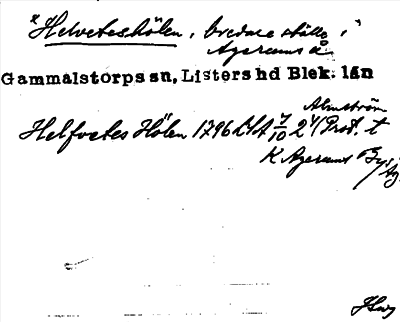 *Helveteshölen, bredare ställe i
Agerums å
Gammalstorps sn, Listers hd Blek. län
Almström
Helfvetes Hölen 1796 LSA 7/10 24/ Prot. t
K Agerums By/
Ag.